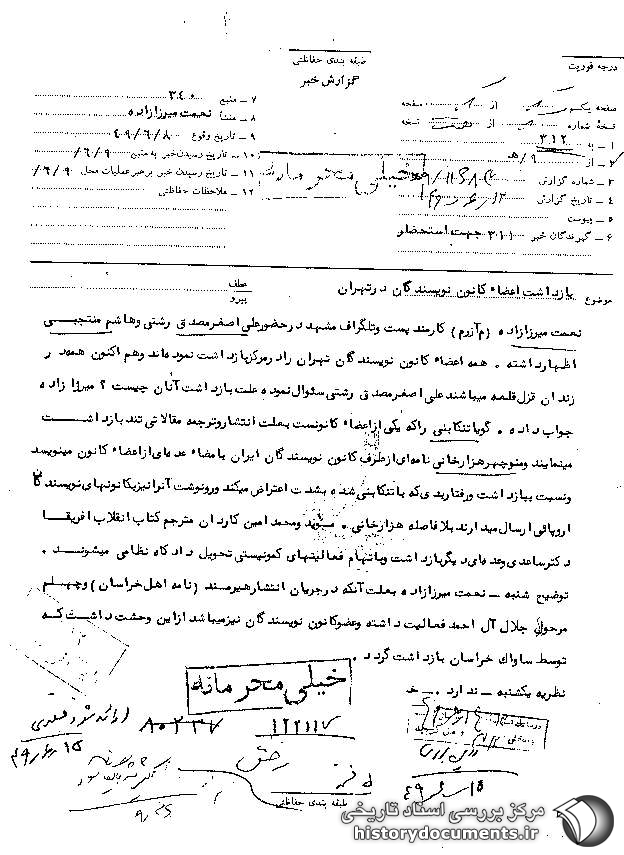 طبقه بندی حفاظتی
گزارش خبر
درجه فوریت
صفحه یکم از صفحه
نسخهٔ شماره از نسخه
۱ ـ به ۳۱۲
۲ ـ از ۹/هـ
۳ ـ شماره گزارش
۴ ـ تاریخ گزارش
۵ ـ پیوست
۶ ـ گیرندگان خبر ۳۱۱ جهت استحضار
۷ ـ منبع ۳۴۰
۸ ـ منشأ نعمت میرزازاده
۹ ـ تاریخ وقوع ۴۹/۶/۸
۱۰ ـ تاریخ رسیدن خبر به منبع ۶/۹/
۱۱ ـ تاریخ رسیدن خبر برهبر عملیات محل ۶/۹/
۱۲ ـ ملاحظات حفاظتی
خیلی محرمانه
موضوع بازداشت اعضاء کانون نویسندگان در تهران
عطف
پیرو
نعمت میرزازاده (م آزرم) کارمند پست وتلگراف مشهد در حضور علی اصغر مصدقی رشتی وهاشم منتجبی
اظهارداشته ۰ همه اعضاء کانون نویسندگان تهران را در مرکز بازداشت نموده‌اند وهم اکنون همه در
زندان قزل قلعه میباشند علی اصغر مصدقی رشتی سئوال نموده علت بازداشت آنان چیست ؟ میرزازاده
جواب داده ۰ گویا تنکابنی راکه یکی از اعضاء کانونست بعلت انتشار وترجمه مقالاتی تند بازداشت
مینمایند ومنوچهر هزارخانی نامه‌ای از طرف کانون نویسندگان ایران با مضاء عده‌ای از اعضاء کانون مینویسد
ونسبت ببازداشت ورفتار بدی که با تنکابنی شده بشدت اعتراض میکند ورونوشت آنرا نیز بکانونهای نویسندگان
اروپائی ارسال میدارند بلافاصله هزارخانی ۰ ومحمد امین کاردان مترجم کتاب انقلاب افریقا
دکتر ساعدی وعده‌ای دیگر بازداشت وباتهام فعالیتهای کمونیستی تحویل دادگاه نظامی میشوند ۰
توضیح شنبه ـ نعمت میرزازاده بعلت آنکه در جریان انتشار هیرمند (نامه اهل خراسان) وچهلم
مرحوم جلال آل احمد فعالیت داشته وعضو کانون نویسندگان نیز میباشد از این وحشت داشت که
توسط ساواک خراسان بازداشت گردد ۰
نظریه یکشنبه ـ ندارد ۰
خیلی محرمانه
۱۲۲۱۱۷
۸۰۲۳۷
۴۹/۶/۱۵
طبقه بندی حفاظتی
مرکز بررسی اسناد تاریخی
historydocuments.ir